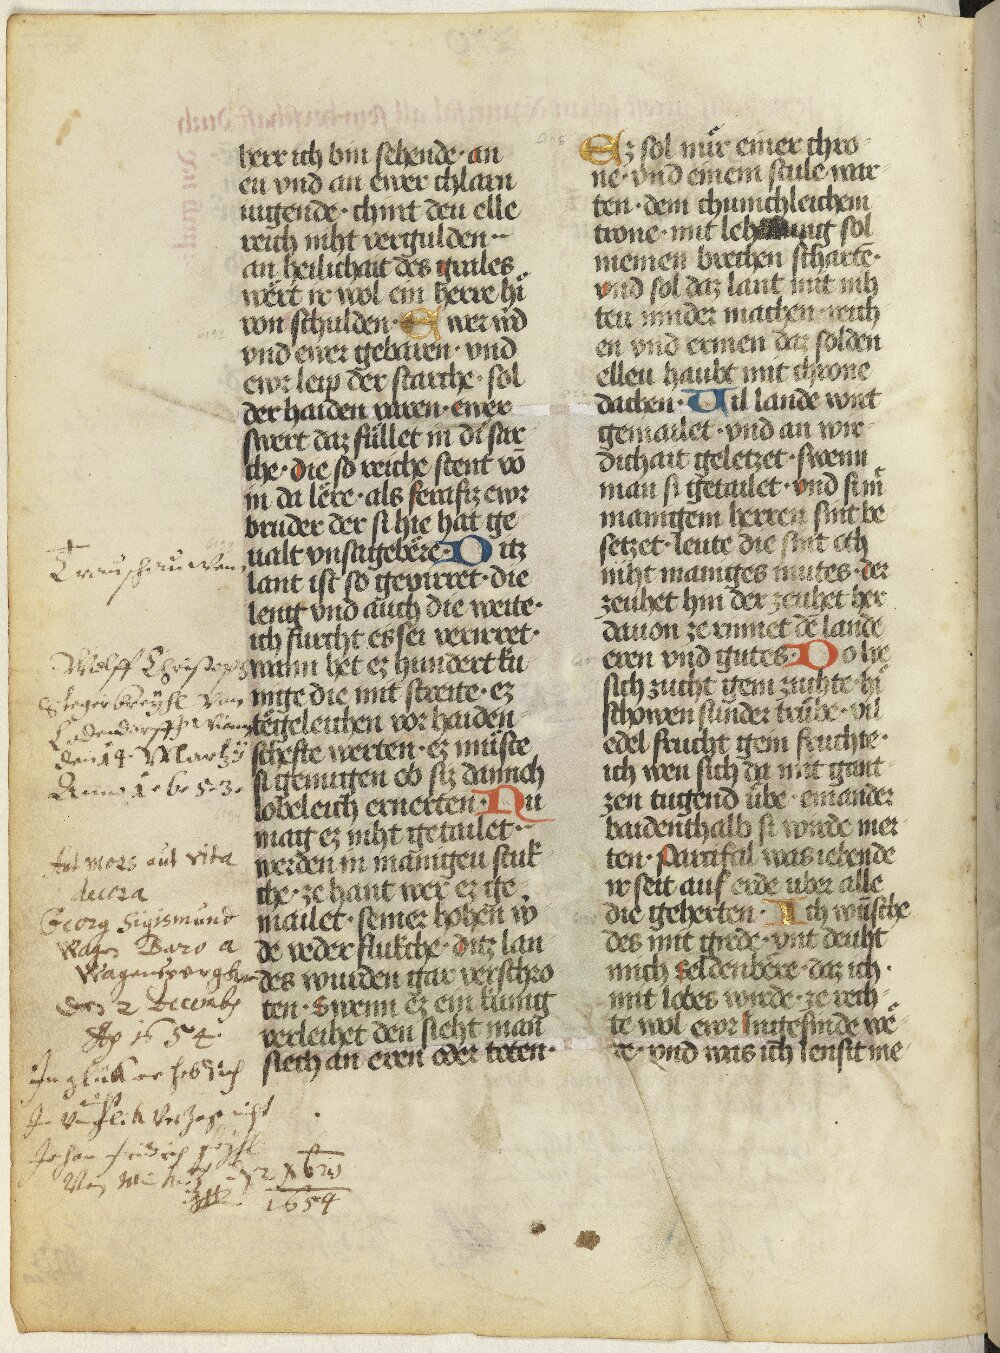 herr ich bin sehende · an
eu vnd an ewer chlarn
iugende · chint den elle
reich niht vergulden ··
an heilichait des grales ·
wert ir wol ein herre hi
von schulden · Ewer wird
vnd ewer gebaren · vnd
ewr leip der starche · sol
der haiden varen · ewer
swert daz füllet in di sar
che · die so reiche stent võ
in da lere · als ferafiz ewr
bruder der si hie hat ge
ualt vnsagebëre · Ditz
lant ist so gevirret · die
leng vnd auch die weite ·
ich furcht es sei verirret ·
wann het ez hundert ku
nige die mit streite · ez
tëgeleichen vor haiden
schefte werten · ez müste
si genugen ob siz dannch
lobeleich ernerten · Nu
mag ez niht getailet ··
werden in manigen stuk
che · ze hant wer ez ge
mailet · seiner hohen w
de veder flukche · ditz lan
des wurden gar verschro
ten · Swenn ez ein kunig
verleihet den sieht man
siech an eren oder toten ·
Ez sol nür einer chro
ne · vnd einem stule war
ten · dem chunichleichem
trone · mit leh ung sol
niemen brechen scharte ·
vnd sol daz lant mit nih
teu minder machen · reich
en vnd ermen daz solden
elleu haubt mit chrone
dachen · Vil lande wirt
gemailet · vnd an wir
dichait geletzet · swenn
man si getailet · vnd si in
manigem herren sint be
setzet · leute die sint och
niht maniges mutes · der
zeuhet hin der zeuhet her
dauon zerinnet de lande
eren vnd gutes · Do lie
sich zucht gein zuhte · hi
schowen sunder trübe · vil
edel frucht gein fruchte ·
ich wen sich da mit gant
zen tugend übe · einander
baidenthalb si wurde mer
ten · Parcifal was iehende
ir seit auf erde uber alle
die geherten · Ich wüsche
des mit grede · vnt deuht
mich seldenbëre · daz ich ·
mit lobes wirde · ze rech
te wol ewr Ingesinde wë
re · vnd was ich iensit me
Wolff Christoph
von
den 14 Martÿ
Anno 1653.
Aut mors aut vita
decora
Georg Sigismund
Wagn Baro a
Wagensperg
den 2 Decemb
Ao 1654.
In glükh er heb dich
nicht
In vnglikh verzag nicht
Johan Fridrich
1654